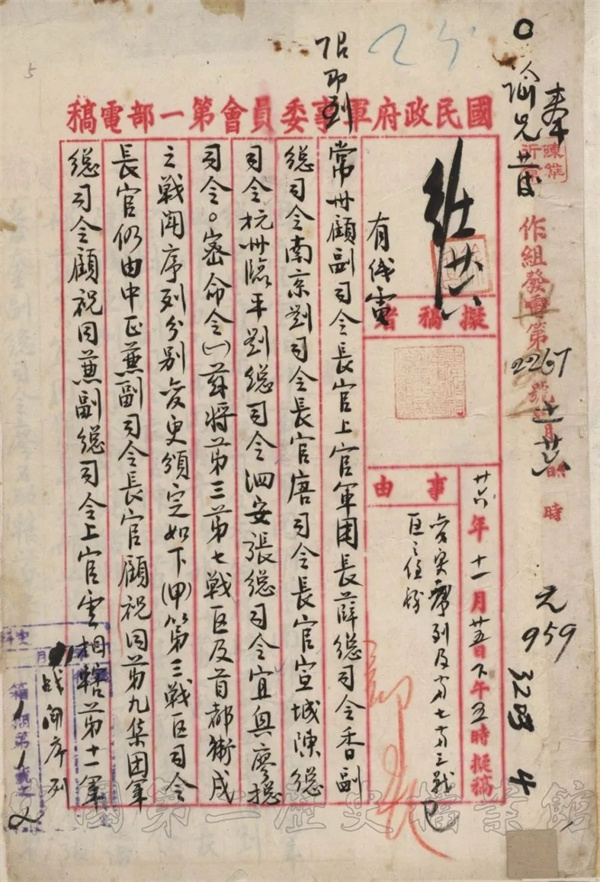 國民政府軍事委員會第一部電稿
限即到
奉
作組發電第2257號 月 時
元
959
3283
4
擬稿者
有线電
事由
廿六年十一月廿五日下午五時擬稿
變更序列及第七第三戰
區之任務
常州顧副司令長官上官軍團長薛總司令香副
總司令南京劉司令長官唐司令長官宣城陳總
司令杭州臨平劉總司令泗安張總司令宜興廖總
司令。密命令(一)茲將第三第七戰区及首都衛戍
之戰鬥序列分別變更頒定如下(甲)第三戰区司令
長官仍由中正兼副司令長官顧祝同第九集团軍
總司令顧祝同兼副總司令上官雲相轄第十一軍
战鬥序列
5
國第二歷史檔案館